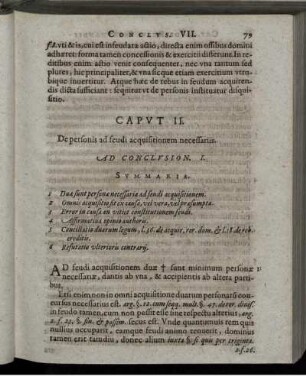 CONCLVS. VII. 79
sit, vti & is, cui est infeudata actio, directa enim ossibus domini
adhæret: forma tamen concessionis & exercitii disserunt. In re-
ditibus enim actio venit consequenter, nec vna tantum sed
plures, hic principaliter, & vna sæpe etiam exercitium vtro-
bique inuertitur. Atque hæc de rebus in feudum acquiren-
dis dicta sufficiant: sequitur vt de personis instituatur disqui-
sitio.
CAPVT II.
De personis ad feudi acquisitionem necessariis.
AD CONCLVSION. I.
SVMMARIA.
1 Duæ sunt personæ necessariæ ad feudi acquisitionem.
2 Omnis acquisitio sit ex causa, vel vera, vel præsumpta.
3 Error in causa an vitiet constitutionem feudi.
4 Affirmatiua opinio authoris.
5 Conciliatio duarum legum, L. 36. de acquir. rer. dom. & L. 18. de reb.
creditis.
6 Refutatio vlterioris contrarij.
AD feudi acquisitionem duæ † sunt minimum personæ 1
necessariæ, dantis ab vna, & accipientis ab altera parti-
bus.
Etsi enim non in omni acquisitione duarum personarū con-
cursus necessarius est.
in feudo tamen, cum non possit esse in respectu alterius, arg.
2. f. 23. § fin. & passim. secus est. Vnde quantumuis rem quæ
nullius occupauit, in feudum animo teneri, domini
tamen erit dominus, donec alium iuxta
2. f. 26.